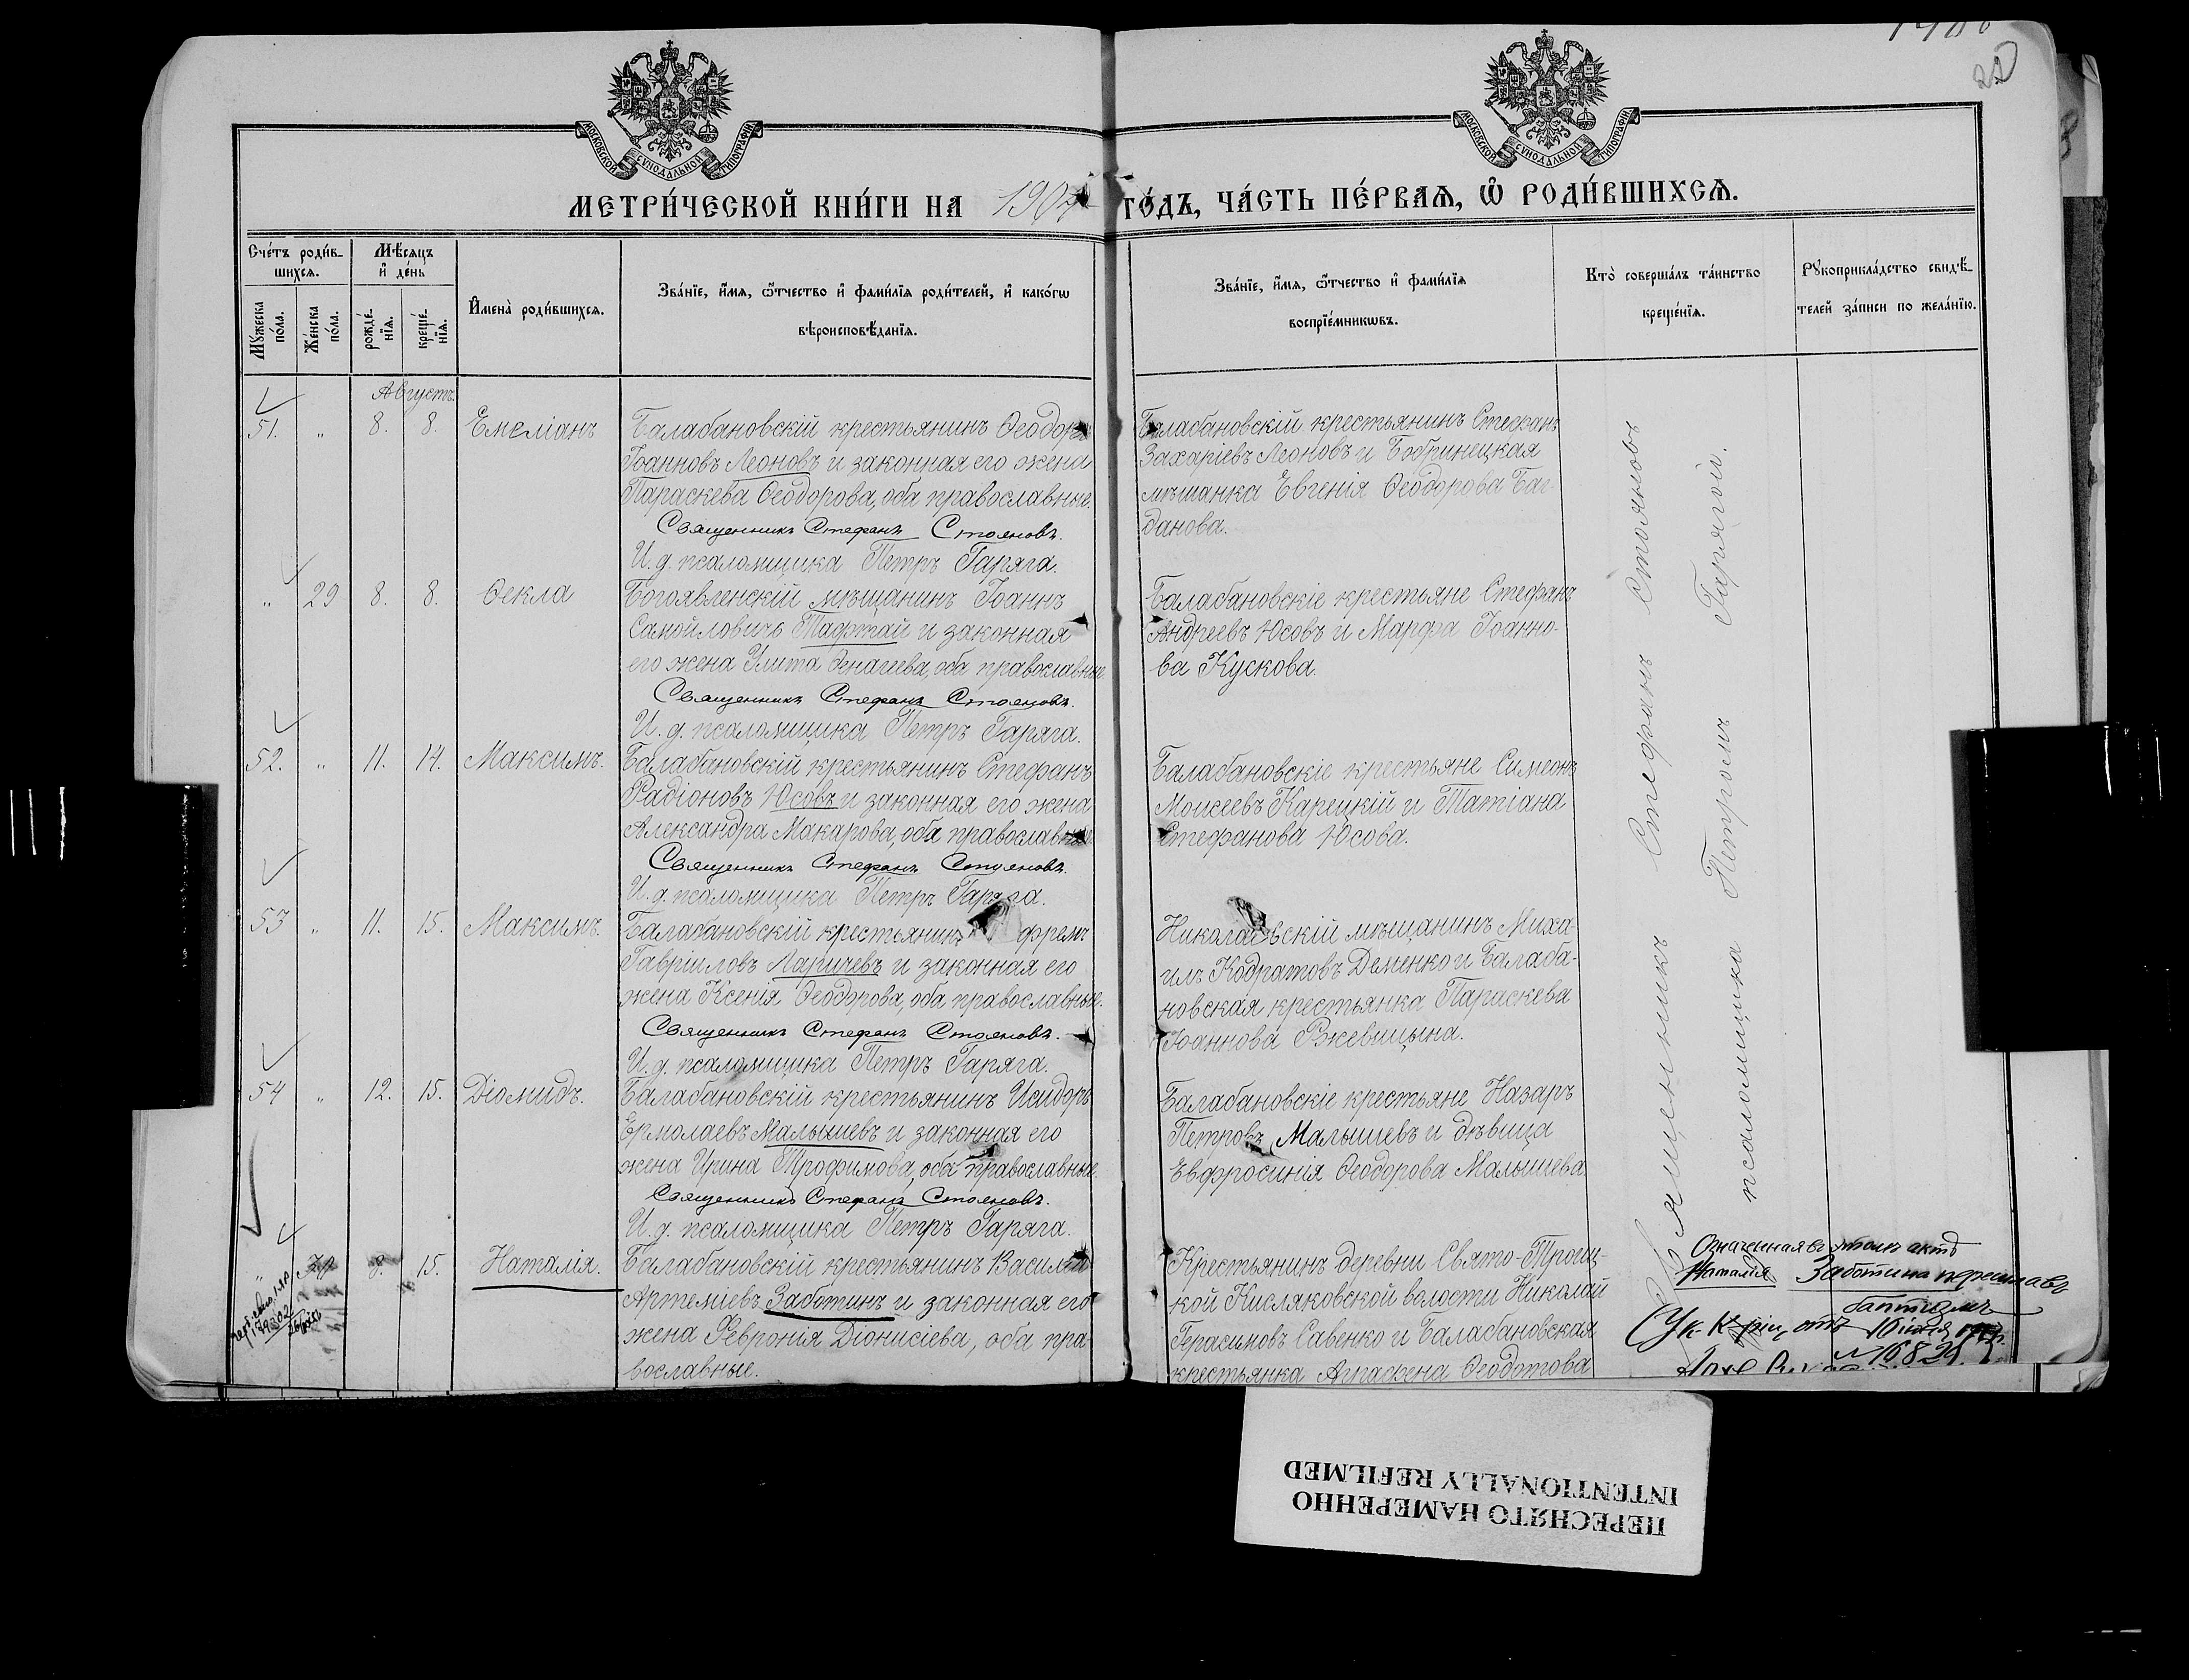 МОСКОВСКОЙ СѴНОДАЛЬНОЙ ТИПОГРАФІИ
МОСКОВСКОЙ СѴНОДАЛЬНОЙ ТИПОГРАФІИ
МЕТРИ́ЧЕСКОЙ КНИ́ГИ НА 190 ГО́ДЪ, ЧА́СТЬ ПЕ́РВАѦ, Ѽ РОДИ́ВШИХСѦ.
Сче́тъ роди́в-
шихсѧ.
Мѣ́сѧцъ
и҆ де́нь
Мꙋ́жеска
по́ла.
Же́нска
по́ла.
рожде́-
нїѧ.
креще́-
нїѧ.
И҆мена̀ роди́вшихсѧ.
Зва́нїе, и҆́мѧ, ѻ҆́тчество и҆ фами́лїѧ роди́телей, и҆ како́гѡ
вѣроисповѣ́данїѧ.
Зва́нїе, и҆́мѧ, ѻ҆́тчество и҆ фами́лїѧ
воспрїе́мникѡвъ.
Кто̀ соверша́лъ та́инство
креще́нїѧ.
Рꙋкоприкла́дство свидѣ́-
телей за́писи по жела́нїю.
Августъ.
51. „ 8. 8. Емеліанъ
Балабановскій крестьянинъ Ѳеодоръ
Іоанновъ Леоновъ и законная его жена
Параскева Ѳеодорова, оба православные.
Священникъ Стефанъ Стояновъ.
И. д. псаломщика Петръ Гаряга.
Балабановскій крестьянинъ Стефанъ
Захаріевъ Леоновъ и Бобринецкая
мѣщанка Евгенія Ѳеодорова Баг-
данова.
„ 29 8. 8. Ѳекла
Богоявленскій мѣщанинъ Іоаннъ
Самойловичъ Тафтай и законная
его жена Улита, оба православные
Священникъ Стефанъ Стояновъ.
И. д. псаломщика Петръ Гаряга.
Балабановскіе крестьяне Стефанъ
Андреевъ Юсовъ и Марфа Іоанно-
ва Кускова.
52. „ 11. 14. Максимъ.
Балабановскій крестьянинъ Стефанъ
Радіоновъ Юсовъ и законная его жена
Александра Макарова, оба православные
Священникъ Стефанъ Стояновъ.
И. д. псаломщика Петръ Гаряга.
Балабановскіе крестьяне Симеонъ
Моисеевъ Карецкій и Татіана
Стефанова Юсова.
53 „ 11. 15. Максимъ.
Балабановскій крестьянинъ фремъ
Гавріиловъ Ларичевъ и законная его
жена Ксенія Ѳеодорова, оба православные.
Священникъ Стефанъ Стояновъ.
И. д. псаломщика Петръ Гаряга.
Николаевскій мѣщанинъ Миха-
илъ Кодратовъ Деменко и Балаба-
новская крестьянка Параскева
Іоаннова Ржевицына.
54 „ 12. 15. Діомидъ.
Балабановскій крестьянинъ Исидоръ
Ермолаевъ Малышевъ и законная его
жена Ирина Трофимова, оба православные.
Священникъ Стефанъ Стояновъ.
И. д. псаломщика Петръ Гаряга.
Балабановскіе крестьяне Назаръ
Петровъ Малышевъ и дѣвица
Евфросинія Ѳеодорова Малышева
„ 8. 15. Наталія.
Балабановскій крестьянинъ Василій
Артеміевъ Заботинъ и законная его
жена Февронія Діонисіева, оба пра-
вославные.
Крестьянинъ деревни Свято-Троиц-
кой Кисляковской волости Николай
Герасимовъ Савенко и Балабановская
крестьянка Аграфена Ѳеодотова
Священникъ Стефанъ Стояновъ
псаломщика Петромъ Гарягой.
Означенная въ этомъ актѣ
Наталія Заботина
отъ 16 іюня
№ 16829
ПЕРЕСНЯТО НАМЕРЕННО
INTENTIONALLY REFILMED